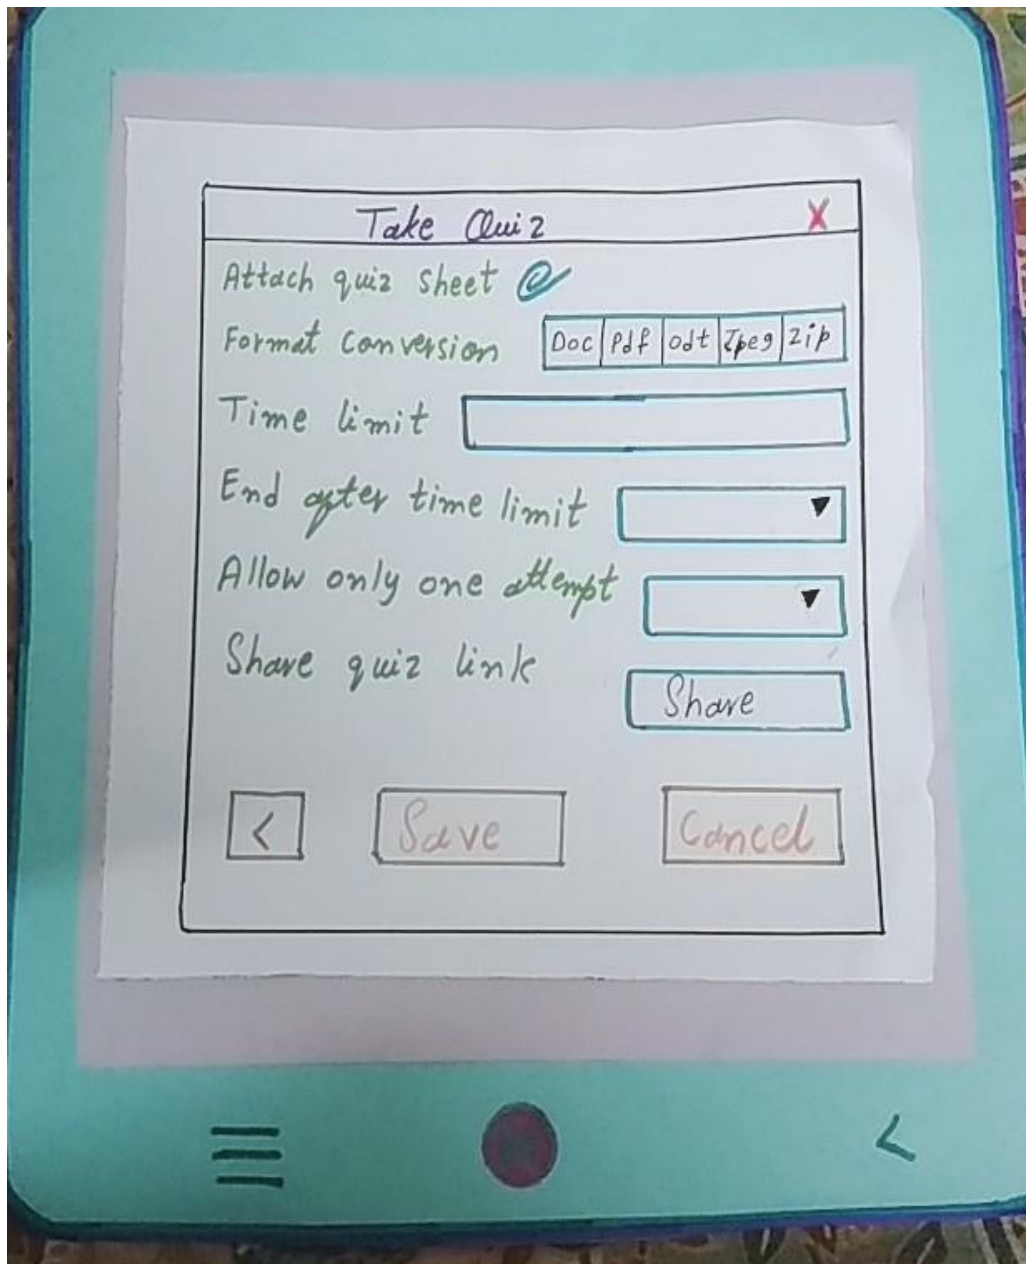 Take Quiz X
Attach quiz sheet
Format Conversion Doc Pdf odt Jpeg Zip
Time limit
End after time limit
Allow only one attempt
Share quiz link
Share
< Save Cancel